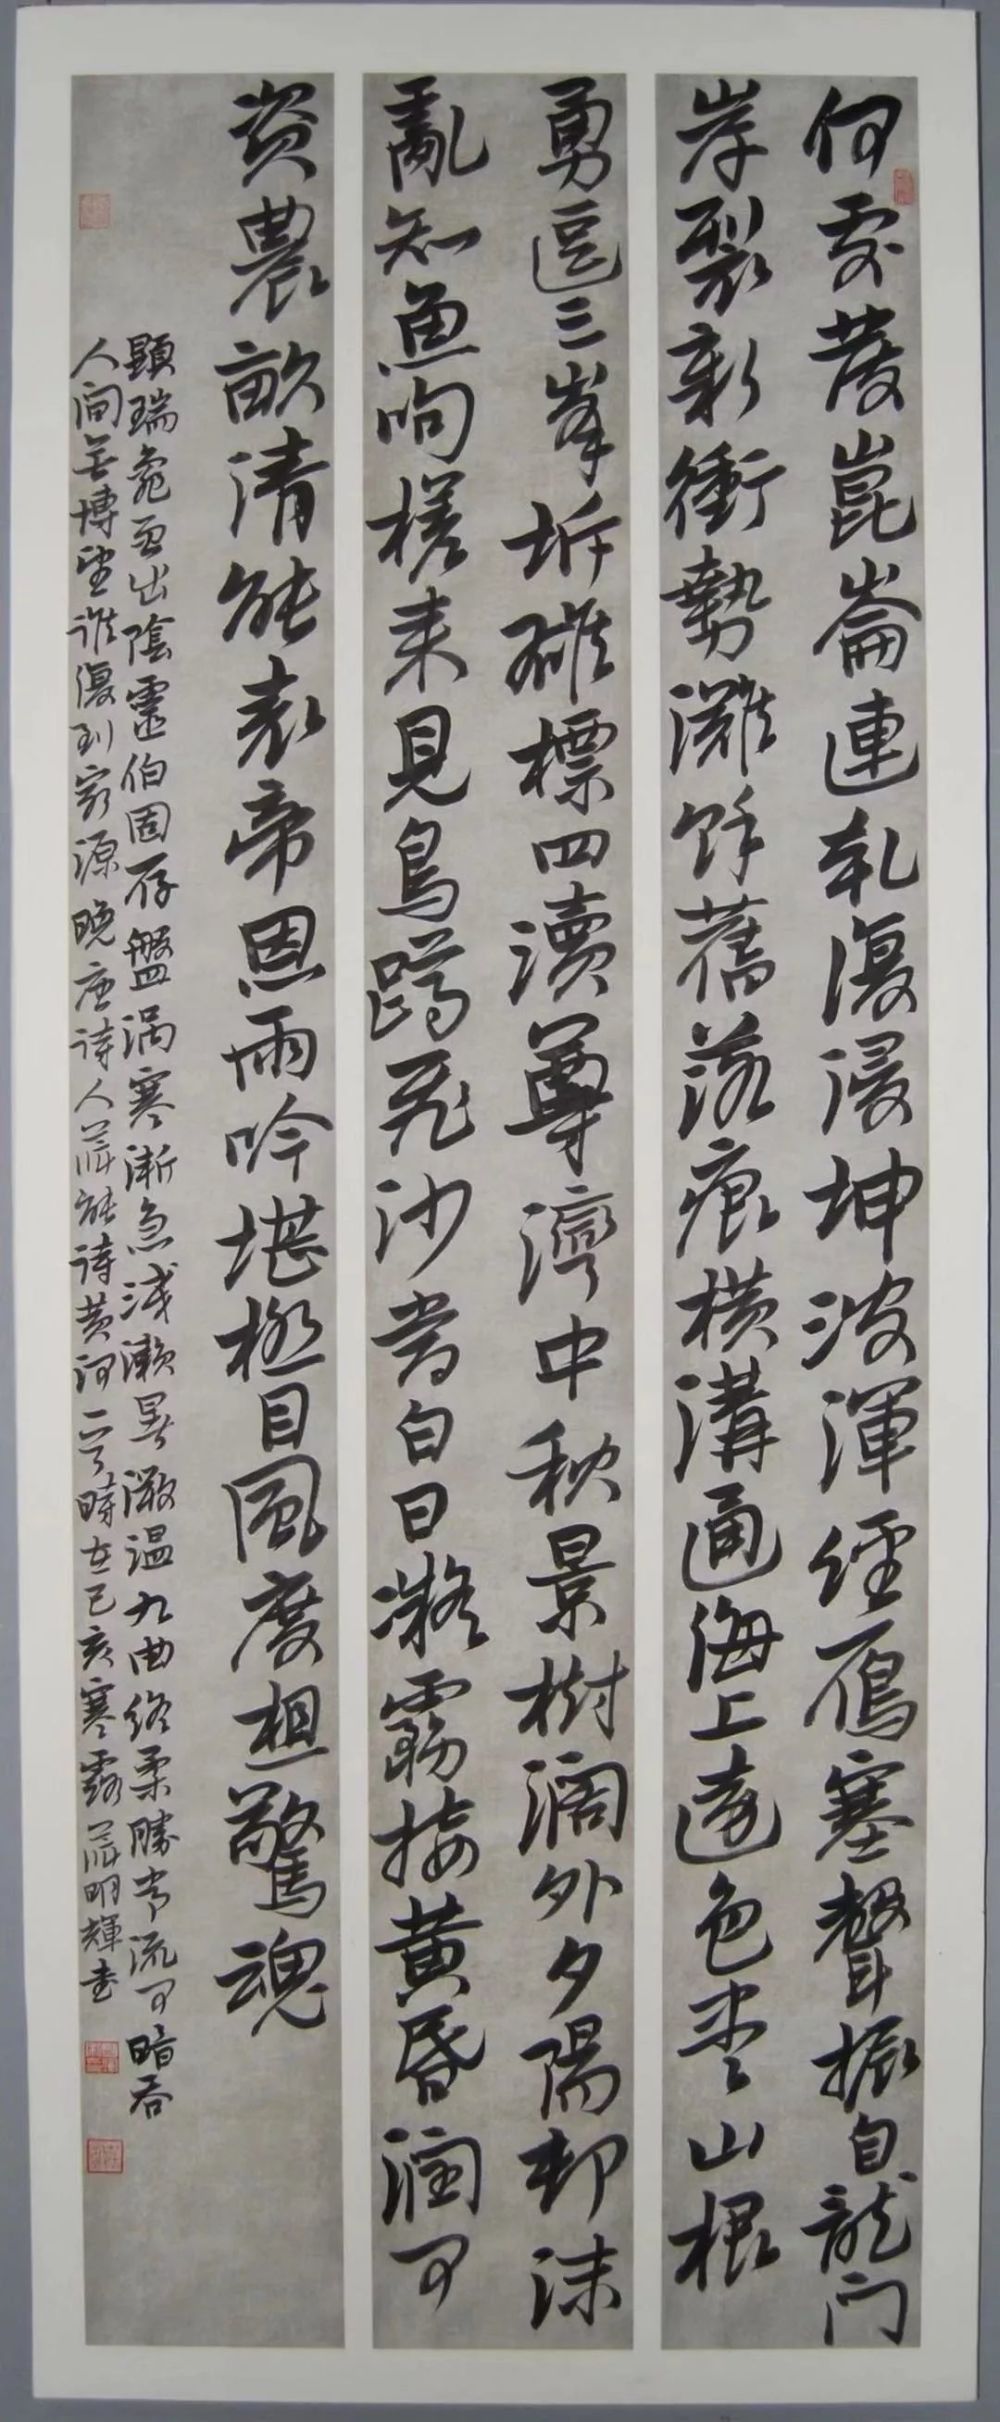 何處發崑崙連乾復浸坤波渾經雁塞聲振自龍门
岸裂新衝勢灘餘舊落痕橫溝通海上遠色盡山根
勇逗三峯坼雄標四瀆尊灣中秋景樹濶外夕陽邨沫
亂知魚呴槎来見鳥蹲飛沙當白日凝霧接黄昏潤可
資農畝清能表帝恩雨吟堪極目風度想驚魂
顯瑞龜曾出陰靈伯固存盤渦寒漸急浅瀨暑微温九曲终柔勝常流可暗吞
人间無博望誰復到窮源晚唐诗人薛能诗黄河一首時在己亥寒露薛明輝書